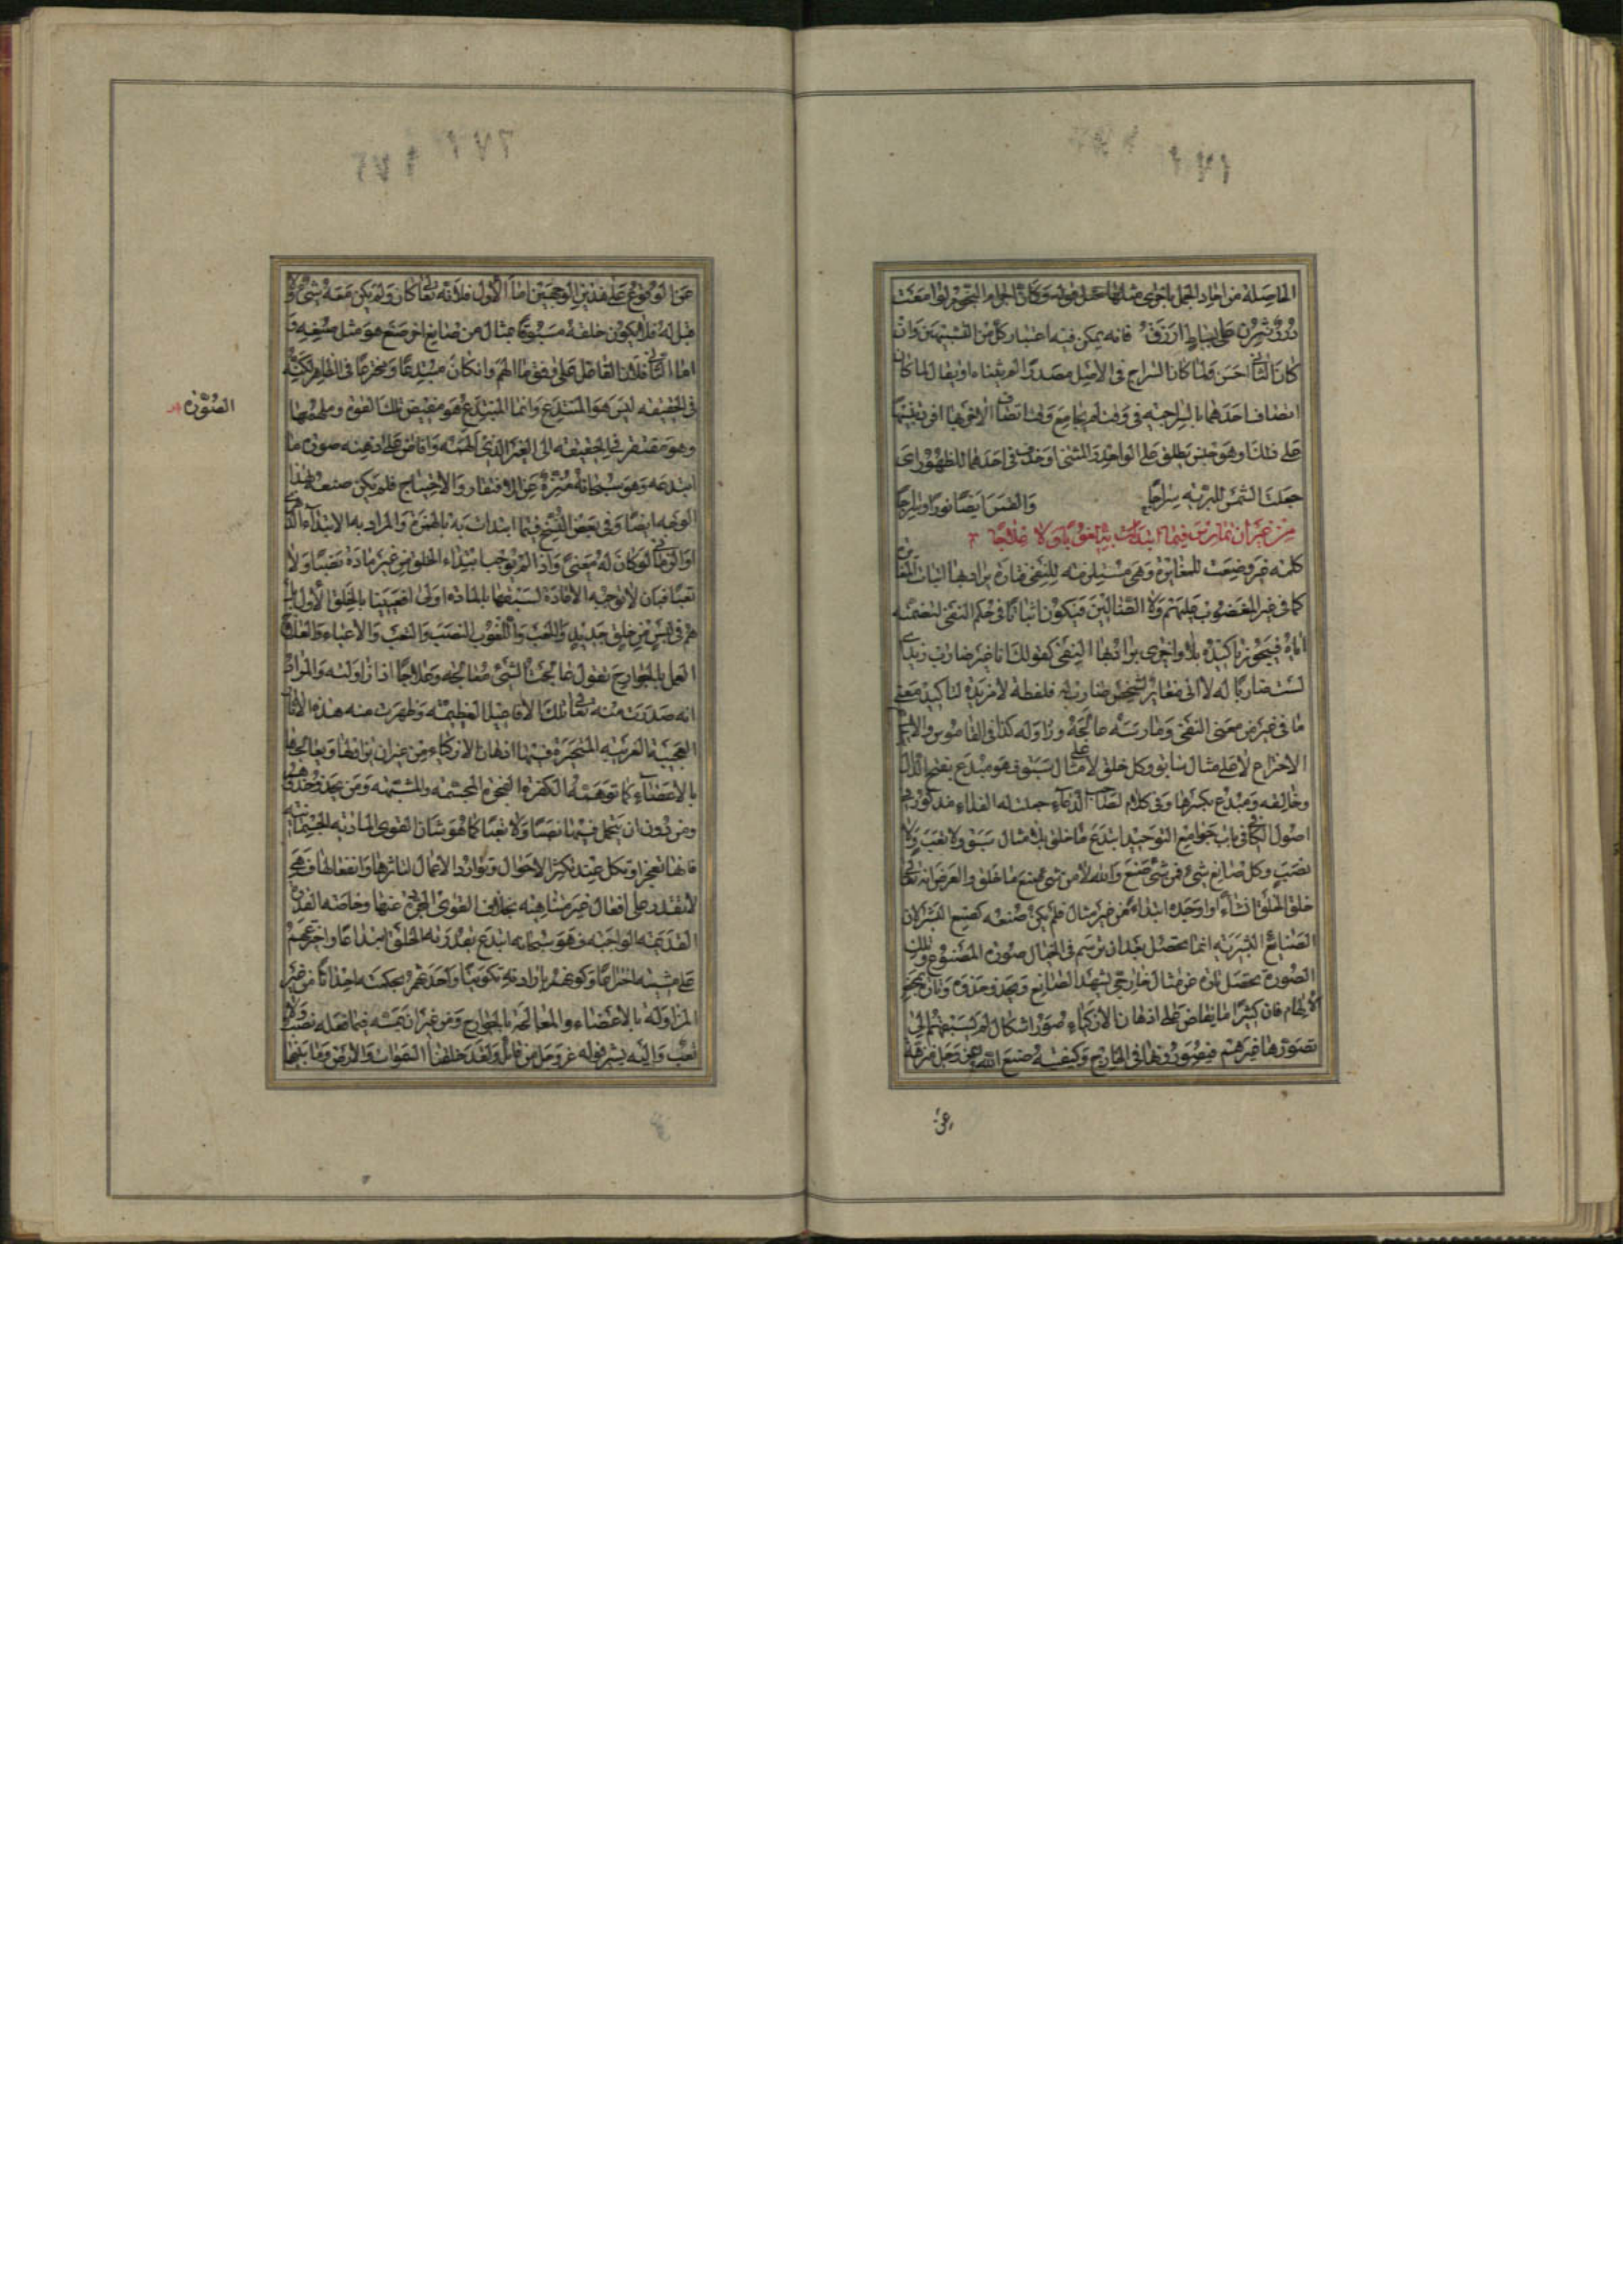 الحاصلة من اجزاء الجمل باخرى مثلها مثل قوله وكان اجرام النجوم لوامعا
درر نثرن على بساط ازرق فانه يمكن فيه اعتبار كل من التشبيهين وان
كان الثانى احسن ولما كان السراج فى الاصل مصدرا
اتصاف احدهما بالسراجية فى وقت
على ذلك او هو جنس يطلق على الواحد والمثنى او حذف فى احدهما للظهور اى
جعلت الشمس للبرية سراجا والقمر ايضا نورا وسراجا
من غير ان تمارس فيما ابتدات به لغوبا ولا علاجا
كلمة غير وضعت للمغايرة وهى مستلزمة للنفى فتارة يراد بها اثبات المغايرة
كما فى غير المغضوب عليهم ولا الضالين فيكون اثباتا فى حكم النفى لتضمنه
اياه فيجوز تاكيده بلا واخرى يراد بها النفى كقولك انا غير ضارب زيدا اى
لست ضاربا له لا انى مغاير لشخص ضارب له فلفظة لا مزيدة لتاكيد معنى
ما فى غير من معنى النفى ومارسه عالجه وزاوله كذا فى القاموس والابداع
الاختراع لا على مثال سابق وكل خلق لا على مثال سبق فهو مبدع بفتح الدال
وخالقه ومبدع بكسرها وفى كلام
اصول الكافى باب جوامع التوحيد ابتدع ما خلق بلا مثال سبق ولا تعب ولا
نصب وكل صانع شىء فمن شىء صنع والله لا من شىء صنع ما خلق والغرض انه تعالى
خلق الخلق انشاء او اوجده ابتداء من غير مثال فلم يكن صنعه كصنع البشر لان
الصنايع البشرية انما تحصل بعد ان ترسم فى الخيال صورة المصنوع وتلك
الصورة تحصل تارة عن مثال خارجى يشهد الصانع ويحذو حذوه وتارة بمحض
الالهام فان كثيرا ما يفاض على اذهان الاذكياء صور اشكال لم يسبقهم الى
تصورها غيرهم فيصورونها فى الخارج وكيفية صنع الله عز وجل منزهة
عن
عن الوقوع على هذين الوجهين اما الاول فلانه تعالى كان ولم يكن معه شىء ولا
قبله فلا يكون خلقه مسبوقا بمثال من صانع اخر صنع هو مثل صنعه و
اما الثانى فلان الفاعل على وفق ما الهم وان كان مبتدعا ومخترعا فى الظاهر لكنه
فى الحقيقة ليس هو المبتدع وانما المبتدع هو مفيض تلك الصورة وملهمها
الصورة
وهو مفتقر فى الحقيقة الى الغير الذى الهمه وافاض على ذهنه صورة ما
ابتدعه وهو سبحانه منزه عن الافتقار والاحتياج فلم يكن صنعه بهذا
الوجه ايضا وفى بعض النسخ فيما ابتدات به بالهمزة والمراد به الابتداء
لو كان له معنى واذا لم يوجب ابتداء الخلق من غير مادة نصبا ولا
تعبا فبان لا يوجبه الاعادة لسبقها بالمادة اولى افعيينا بالخلق الاول بل
هم فى لبس من خلق جديد واللغب واللغوب النصب والتعب والاعياء والعلاج
العمل بالجوارح تقول عالجت الشىء معالجة وعلاجا اذا زاولته والمراد
انه صدرت منه تعالى تلك الافاعيل العظيمة وظهرت منه هذه الاثار
العجيبة الغريبة المتحيرة فيها اذهان الاذكياء من غير ان يزاولها ويعالجها
بالاعضاء كما توهمته الكفرة الفجرة المجسمة والمشبهة ومن يحذو حذوهم
ومن دون ان يتحمل فيها نصبا ولا تعبا كما هو شان القوى المادية الجسمانية
فانها تعجز او تكل عند تكثر الاحوال وتوارد الاعمال لتاثرها وانفعالها فهى
لا تقدر على افعال غير متناهية بخلاف القوى المجردة عنها وخاصة القدرة
القديمة الواجبة فهو سبحانه ابتدع بقدرته الخلق ابتداعا واخترعهم
على مشيته اختراعا وكونهم بارادته تكوينا واحدثهم بحكمته احداثا من غير
المزاولة بالاعضاء والمعالجة بالجوارح ومن غير ان يمسه فيما فعله نصب ولا
تعب واليه يشير قوله عز وجل من قائل ولقد خلقنا السموات والارض وما بينهما